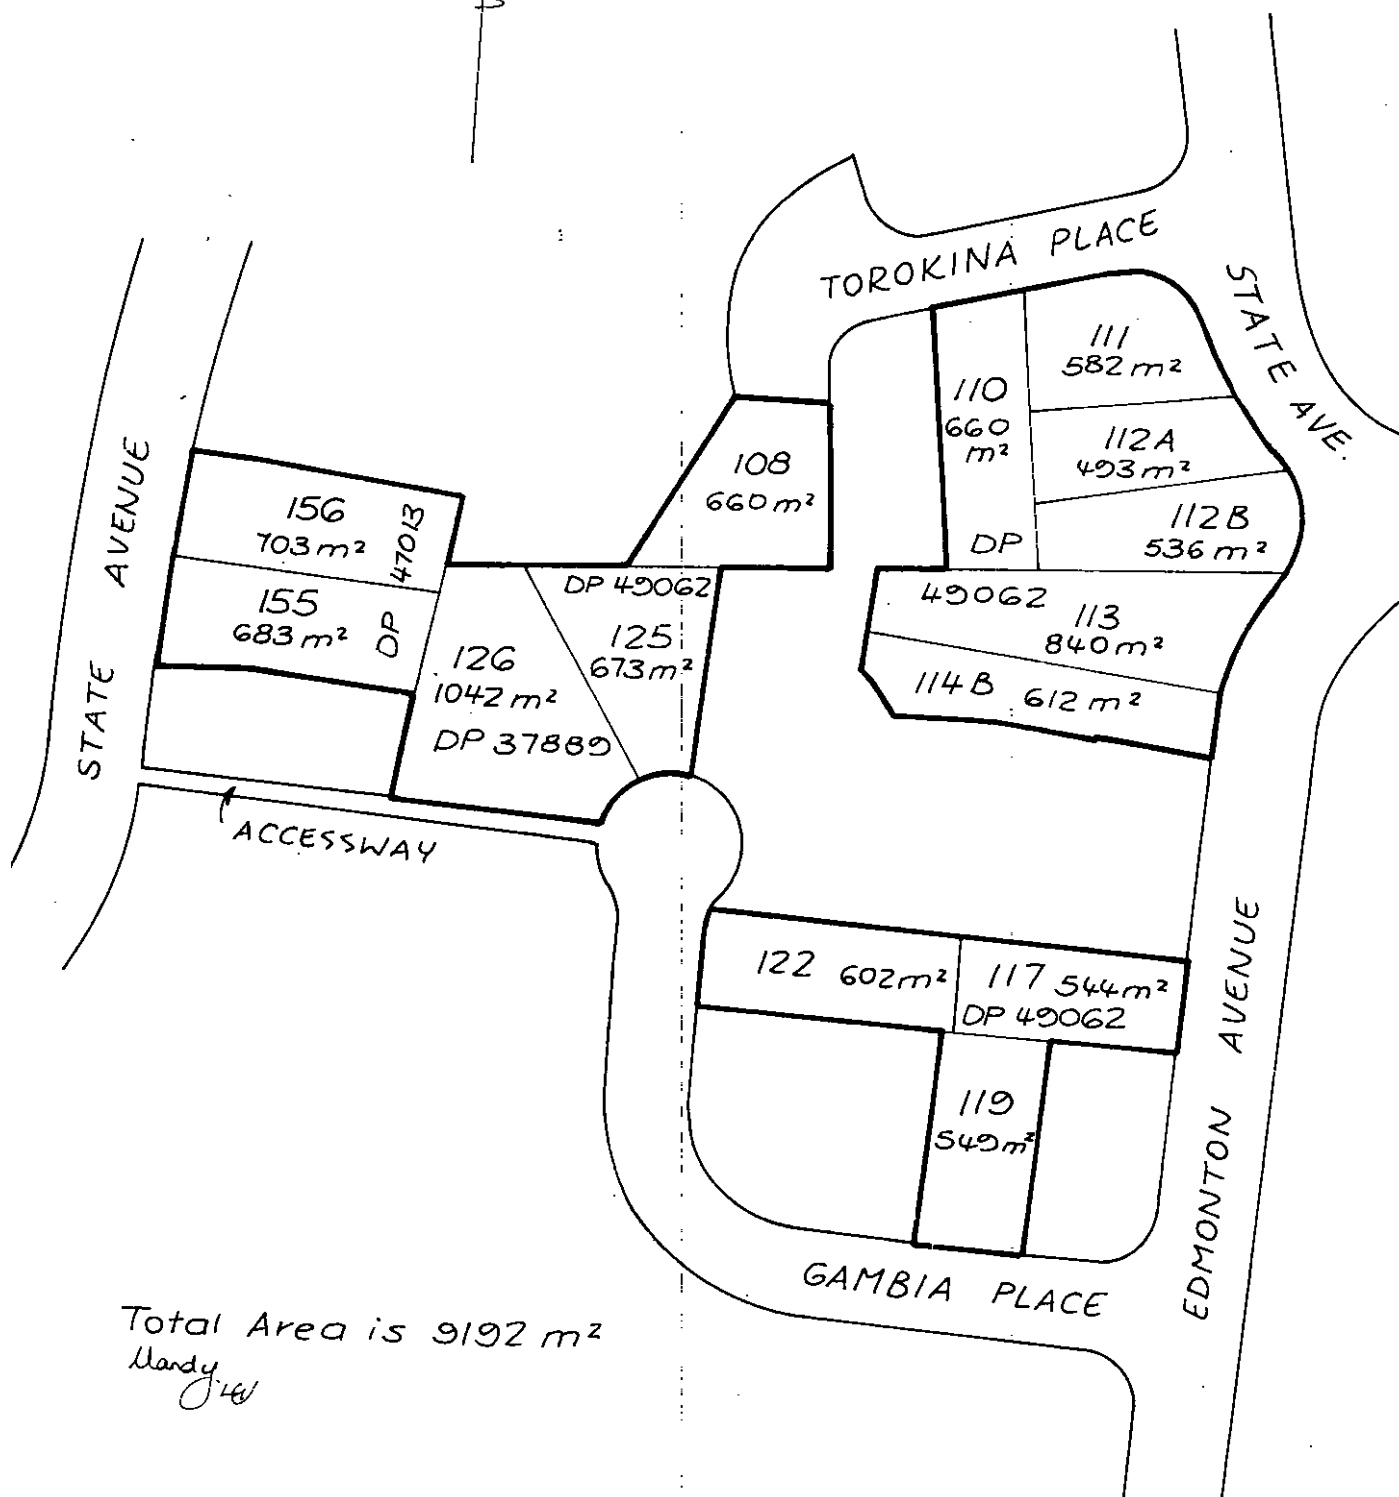 TOROKINA PLACE
STATE AVE.
111
582 m²
110
660
m²
112A
493 m²
108
660 m²
112B
536 m²
DP
49062
113
840 m²
114B 612 m²
STATE AVENUE
156
703 m²
155
683 m²
DP 47013
DP 49062
125
673 m²
126
1042 m²
DP 37889
ACCESSWAY
122 602 m²
117 544 m²
DP 49062
119
549 m²
EDMONTON AVENUE
GAMBIA PLACE
Total Area is 9192 m²